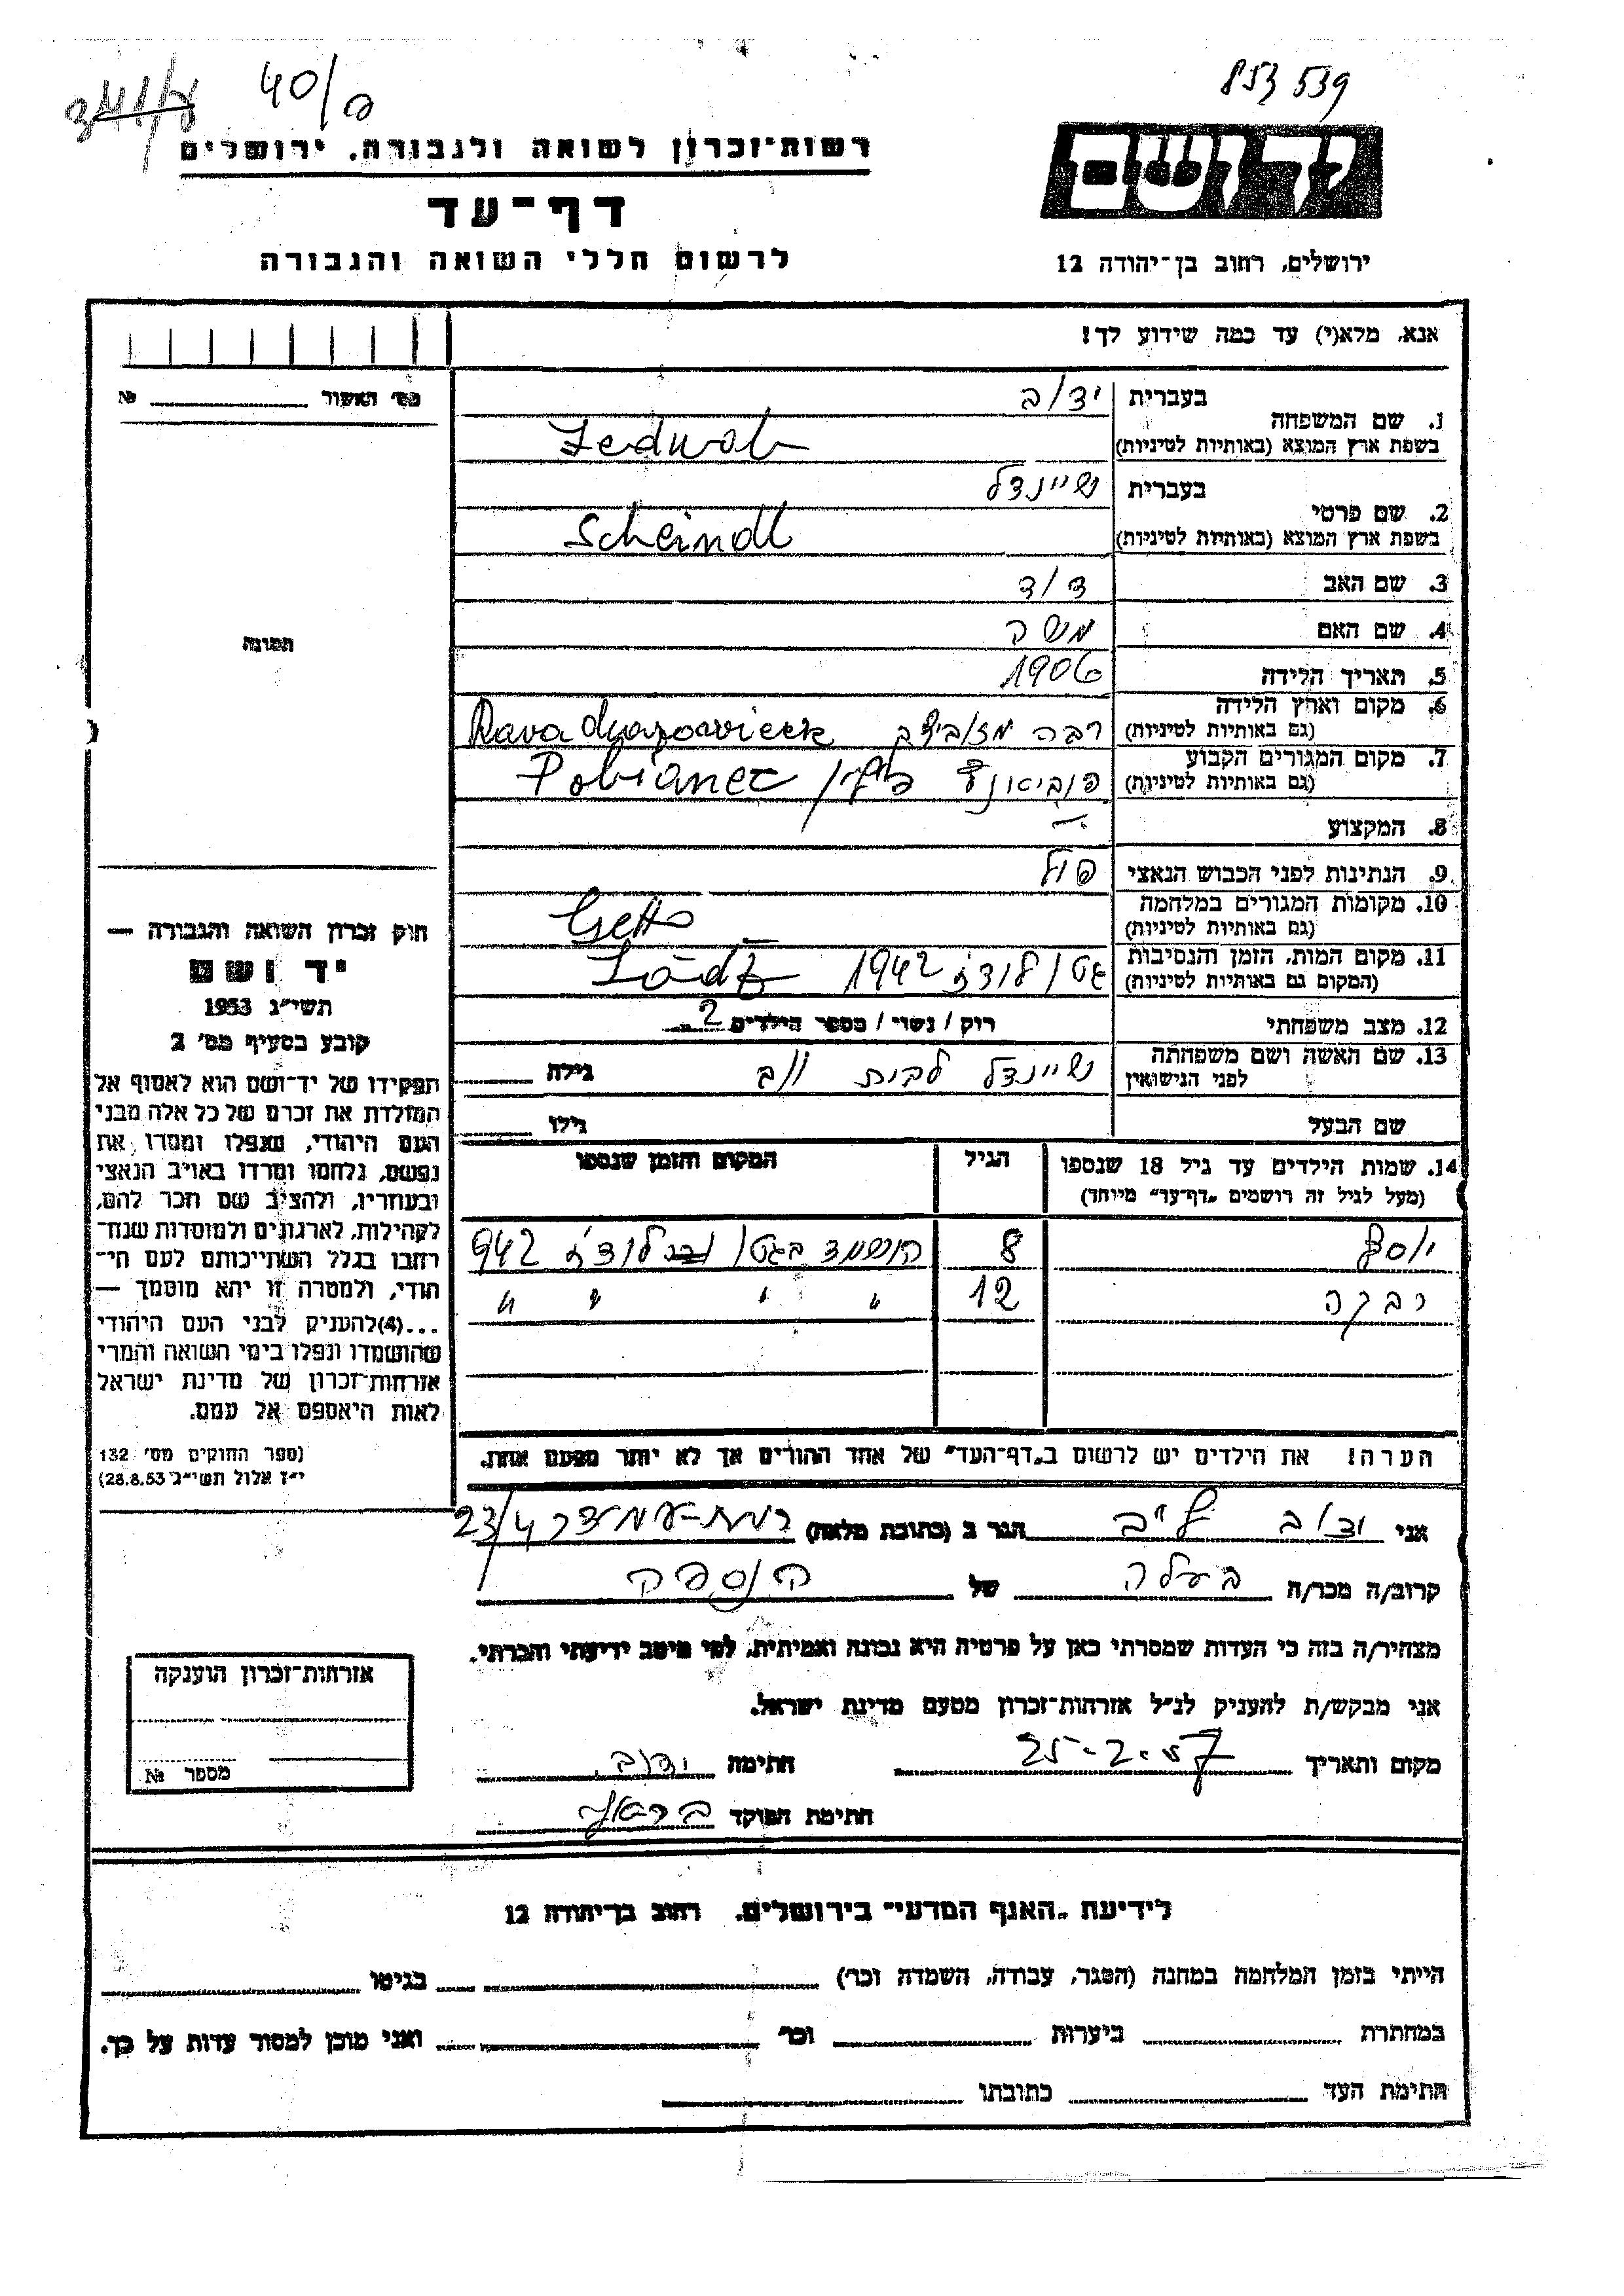 853539
40/ה
רשות־זכרון לשואה ולגבורה, ירושלים
דף־עד
לרשום חללי השואה והגבורה
יד ושם
ירושלים, רחוב בן־יהודה 12
אנא, מלא(י) עד כמה שידוע לך!
מס' האשור № 
בעברית
1. שם המשפחה
בשפת ארץ המוצא (באותיות לטיניות)
בעברית שיינדל
2. שם פרטי
בשפת ארץ המוצא (באותיות לטיניות) Scheindl
3. שם האב דוד
4. שם האם
5. תאריך הלידה 1906
6. מקום וארץ הלידה
(גם באותיות לטיניות) Rava
7. מקום המגורים הקבוע
(גם באותיות לטיניות) Pobianec
8. המקצוע —
9. הנתינות לפני הכבוש הנאצי פול
10. מקומות המגורים במלחמה
(גם באותיות לטיניות) Getto
11. מקום המות, הזמן והנסיבות
(המקום גם באותיות לטיניות) גטו לודז 1942 Lódz
12. מצב משפחתי רוק / נשוי / מספר הילדים 2
13. שם האשה ושם משפחתה
לפני הנישואין שיינדל לבית גילה
שם הבעל גילו
14. שמות הילדים עד גיל 18 שנספו הגיל המקום והזמן שנספו
(מעל לגיל זה רושמים "דף־עד" מיוחד)
יוסף 8 הושמד בגטו לודז 942
רבקה 12 " " " "
הערה! את הילדים יש לרשום ב"דף־העד" של אחד ההורים אך לא יותר מפעם אחת.
תמונה
חוק זכרון השואה והגבורה —
יד ושם
תשי"ג 1953
קובע בסעיף מס' 2
תפקידו של יד־ושם הוא לאסוף אל
המולדת את זכרם של כל אלה מבני
העם היהודי, שנפלו ומסרו את
נפשם, נלחמו ומרדו באויב הנאצי
ובעוזריו, ולהציב שם וזכר להם,
לקהילות, לארגונים ולמוסדות שנח־
רחבו בגלל השתייכותם לעם הי־
הודי, ולמטרה זו יהא מוסמך —
...(4)להעניק לבני העם היהודי
שהושמדו ונפלו בימי השואה והמרי
אזרחות־זכרון של מדינת ישראל
לאות היאספם אל עמם.
(ספר החוקים מס' 132
י"ז אלול תשי"ג 28.8.53)
אני ידוב לייב הגר ב (כתובת מלאה) רמת־עמידר 23/4
קרוב/ה מכר/ה בעלה של הנספה
מצהיר/ה בזה כי העדות שמסרתי כאן על פרטיה היא נכונה ואמיתית, לפי מיטב ידיעתי והכרתי.
אני מבקש/ת להעניק לנ"ל אזרחות־זכרון מטעם מדינת ישראל.
מקום ותאריך 25-2-57 חתימה
חתימת הפוקד
אזרחות־זכרון הוענקה
מספר №
לידיעת "האגף המדעי" בירושלים, רחוב בן־יהודה 12
הייתי בזמן המלחמה במחנה (הסגר, עבודה, השמדה וכו') בגיטו
במחתרת ביערות וכו' ואני מוכן למסור עדות על כך.
חתימת העד כתובתו